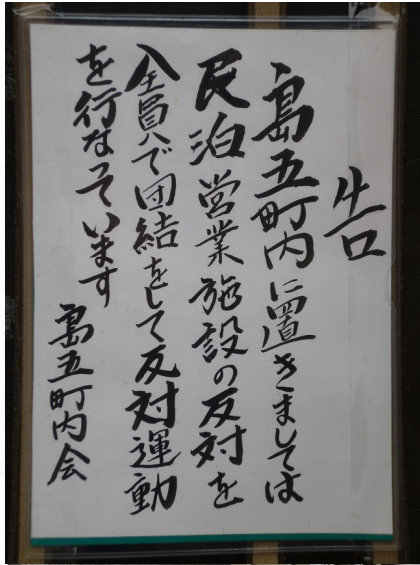 告
島五町内に置きましては
民泊営業施設の反対を
全員で団結をして反対運動
を行なっています
島五町内会